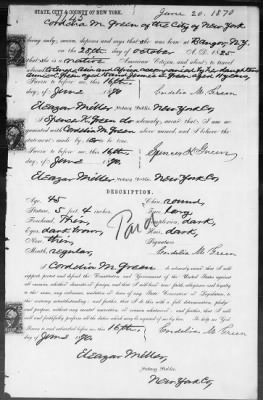 June 20, 1870
STATE, CITY & COUNTY OF NEW YORK.
Cordelia M. Green of the City of New York
being duly sworn, deposes and says that she was born at Bangor, N.Y.
on the 28th day of October A. D. 1825
that she is a native Citizen, and about to travel
abroad
Sworn to before me this 16th
day of June 1870
Cordelia M. Green
Eleazar Miller, Notary Public. New York Co
I Spencer K. Green do solemnly swear, that I am acquainted
with Cordelia M. Green above named, and I believe the
statement made by her to be true.
Sworn to before me this 16th
day of June 1870
Spencer K. Green
Eleazar Miller, Notary Public. New York Co
DESCRIPTION.
Age, 45
Chin, round
Stature, 5 feet 4 inches,
Face, long
Forehead, thin
Complexion, dark,
Eyes, dark brown
Hair, dark,
Nose, thin
Signature
Mouth, regular,
Cordelia M. Green
Paid
I Cordelia M. Green do solemnly swear that I will
support protect and defend the Constitution and Government of the United States against
all enemies, whether domestic or foreign, and that I will bear true faith, allegiance and loyalty
to the same, any ordinance, resolution or law of any State Convention or Legislature, to
the contrary notwithstanding; and further, that I do this with a full determination, pledge
and purpose, without any mental reservation or evasion whatsoever; and further, that I will
well and faithfully perform all the duties which may be required of me by law. So help me God
Sworn to and subscribed before me this 16th
day of June 1870
Cordelia M. Green
Eleazar Miller,
Notary Public.
New York Co